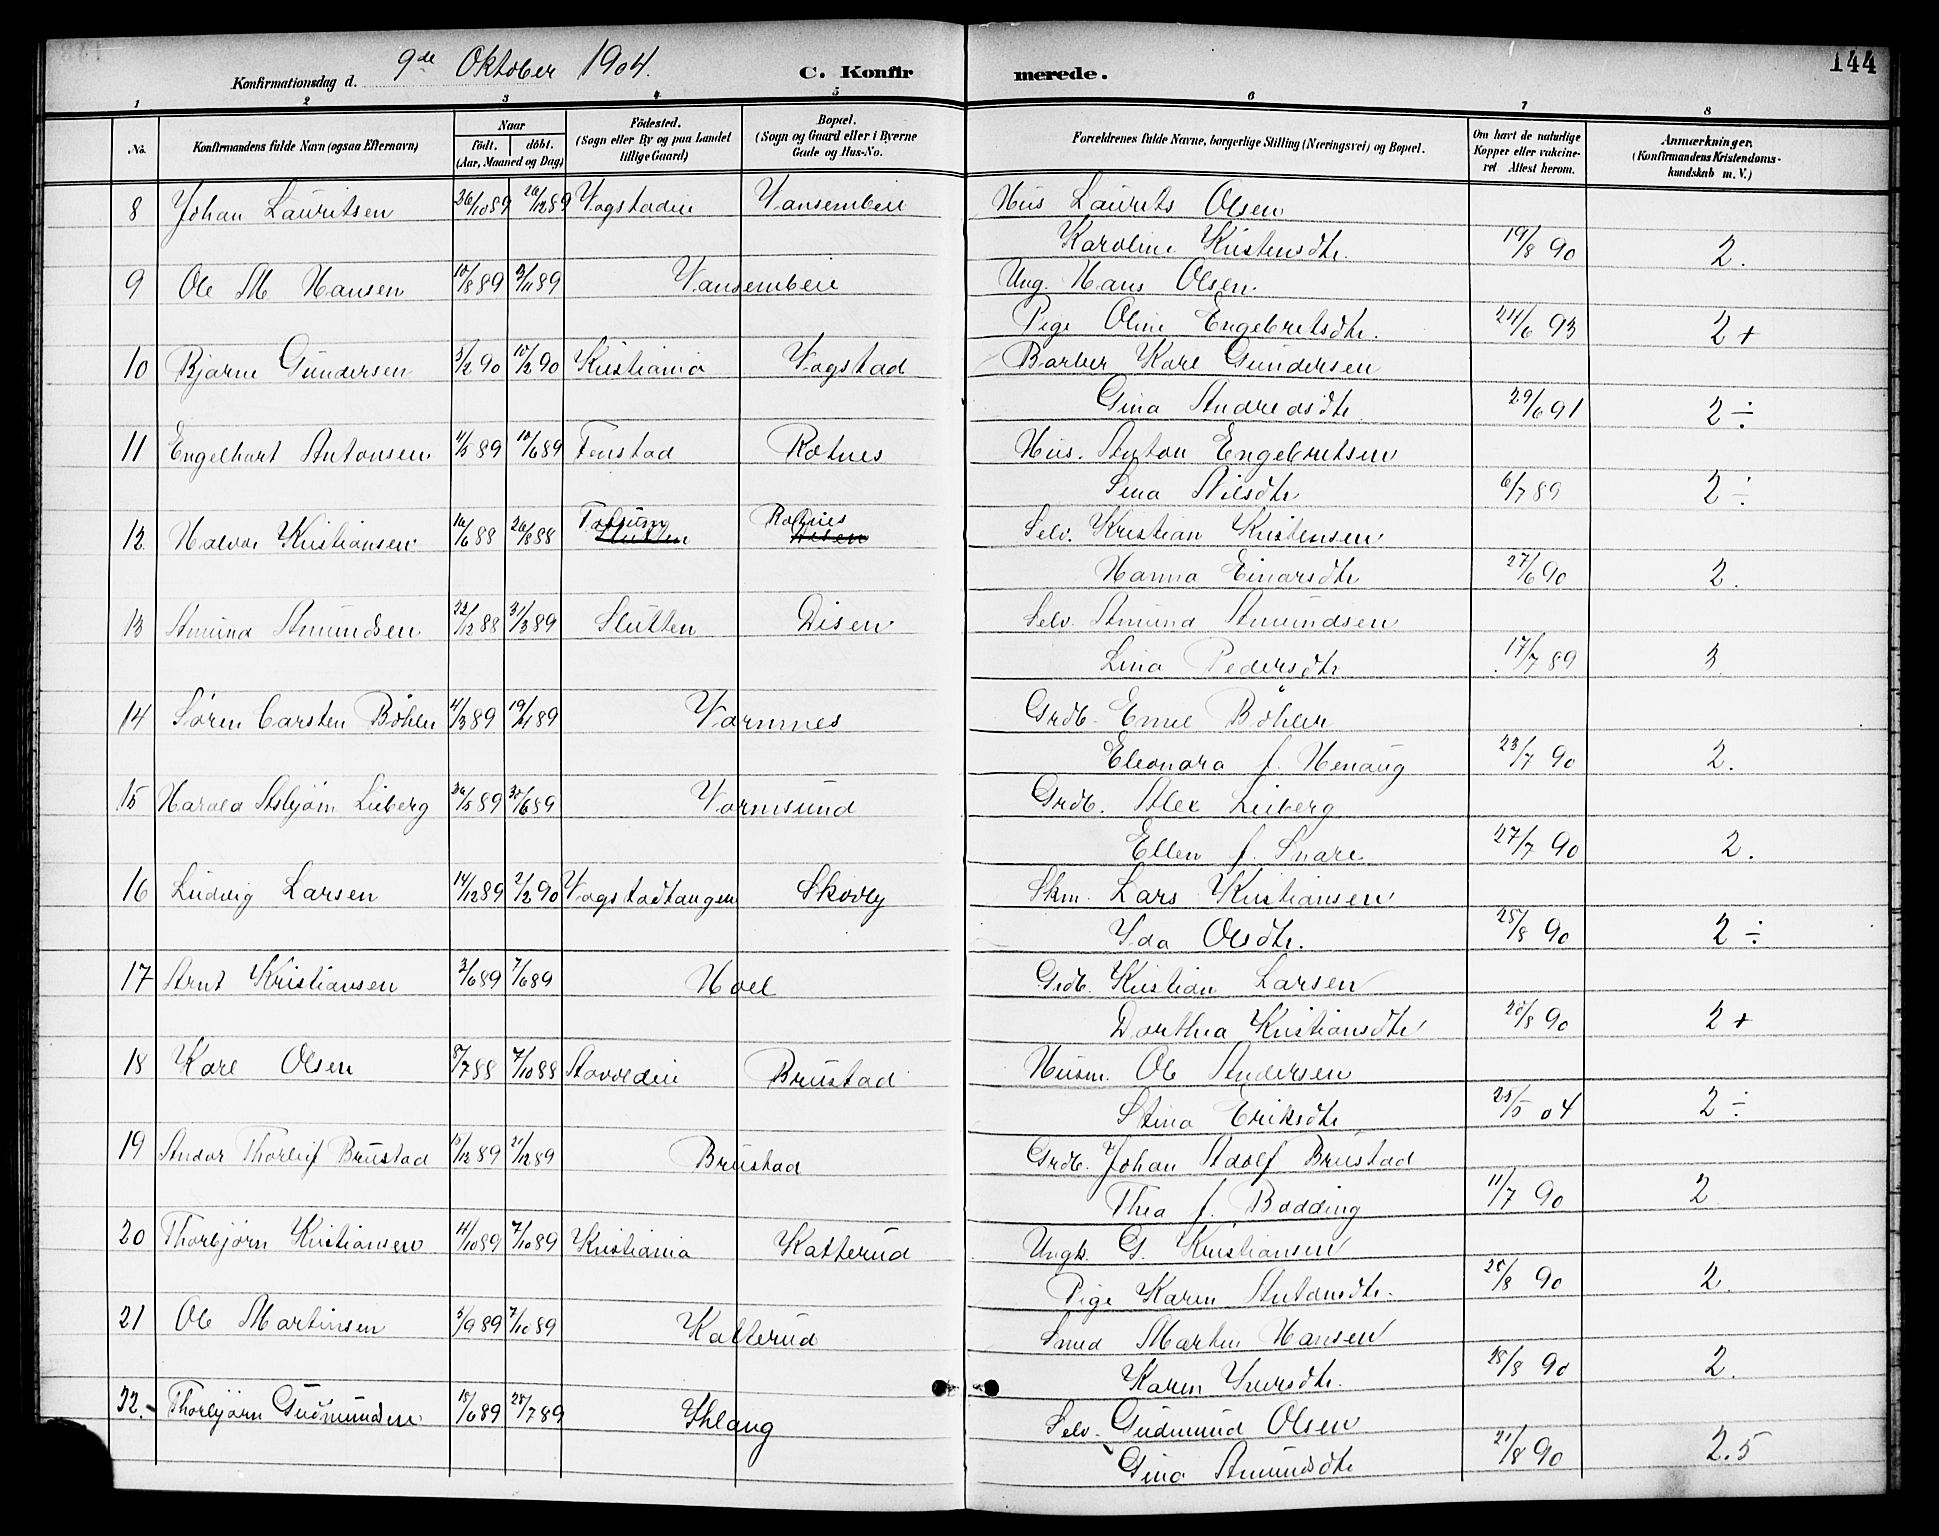 Konfirmationsdag d. 9de Oktober 1904. C. Konfirmerede. 144
1 2 3 4 5 6 7 8
No. Konfirmandens fulde Navn (ogsaa Efternavn) Naar født. døbt. (Aar, Maaned og Dag) Fødested. (Sogn eller By og paa Landet tillige Gaard) Bopæl. (Sogn og Gaard eller i Byerne Gade og Hus-No. Forældrenes fulde Navne, borgerlige Stilling (Næringsvei) og Bopæl. Om havt de naturlige Kopper eller vakcineret. Attest herom. Anmærkninger. (Konfirmandens Kristendomskundskab m. V.)
8 Johan Lauritsen 26/10 89 26/12 89 Vogstadeie Hus Laurits Olsen
Karoline Kristensdtr. 19/8 90 2.
9 Ole M Hansen 10/8 89 3/11 89 Ung. Hans Olsen.
Pige Oline Engebretsdtr. 24/6 93 2+
10 Bjarne Gundersen 3/2 90 10/2 90 Kristiania Vogstad Barber Karl Gundersen
Gina Andreasdtr. 29/6 91 2÷
11 Engelhart Antonsen. 4/5 89 10/6 89 Fenstad Rotnes Hus. Anton Engebretsen
Lina Nilsdtr 6/7 89 2÷
12 Halvor Kristiansen 16/6 88 26/8 88 Slutten Rotnes Disen Selv. Kristian Kristensen
Hanna Einarsdtr 27/6 90 2.
13 Amund Amundsen 22/12 88 31/3 89 Slutten Disen Selv. Amund Amundsen
Lina Pedersdtr 17/7 89 3
14 Søren Carsten Bøhler 4/3 89 19/4 89 Vormnes Grdb. Emil Bøhler
Eleonora f. Henaug 23/7 90 2.
15 Harald Asbjørn Lieberg 26/5 89 30/6 89 Vormsund Grdb. Alex Lieberg
Ellen f. Snare 27/7 90 2.
16 Ludvig Larsen 14/12 89 2/2 90 Vogstadtangen Skovly Skm. Lars Kristiansen
Ida Olsdtr. 25/8 90 2÷
17 Arnt Kristiansen 3/6 89 7/6 89 Hoel Grdb. Kristian Larsen
Dorthea Kristiansdtr 25/8 90 2+
18 Karl Olsen 8/7 88 7/10 88 Brustad Husm. Ole Andersen
Stina Eriksdtr 25/5 04 2÷
19 Andor Thorleif Brustad 15/12 89 21/12 89 Brustad Grdb. Johan Adolf Brustad
Thea f. Badding 11/7 90 2
20 Thorbjørn Kristiansen 4/10 89 7/10 89 Kristiania Katterud Ungk. G. Kristiansen
Pige Karen Antonsdtr. 25/8 90 2.
21 Ole Martinsen 3/9 89 7/10 89 Katterud Smed Martin Hansen
Karen Iversdtr. 25/8 90 2.
22. Thorbjørn Gudmundsen 15/6 89 28/7 89 Ihlang Selv. Gudmund Olsen
Gina Amundsdtr 21/8 90 2.5